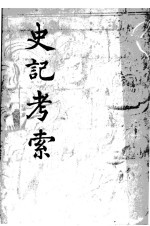 史記考索